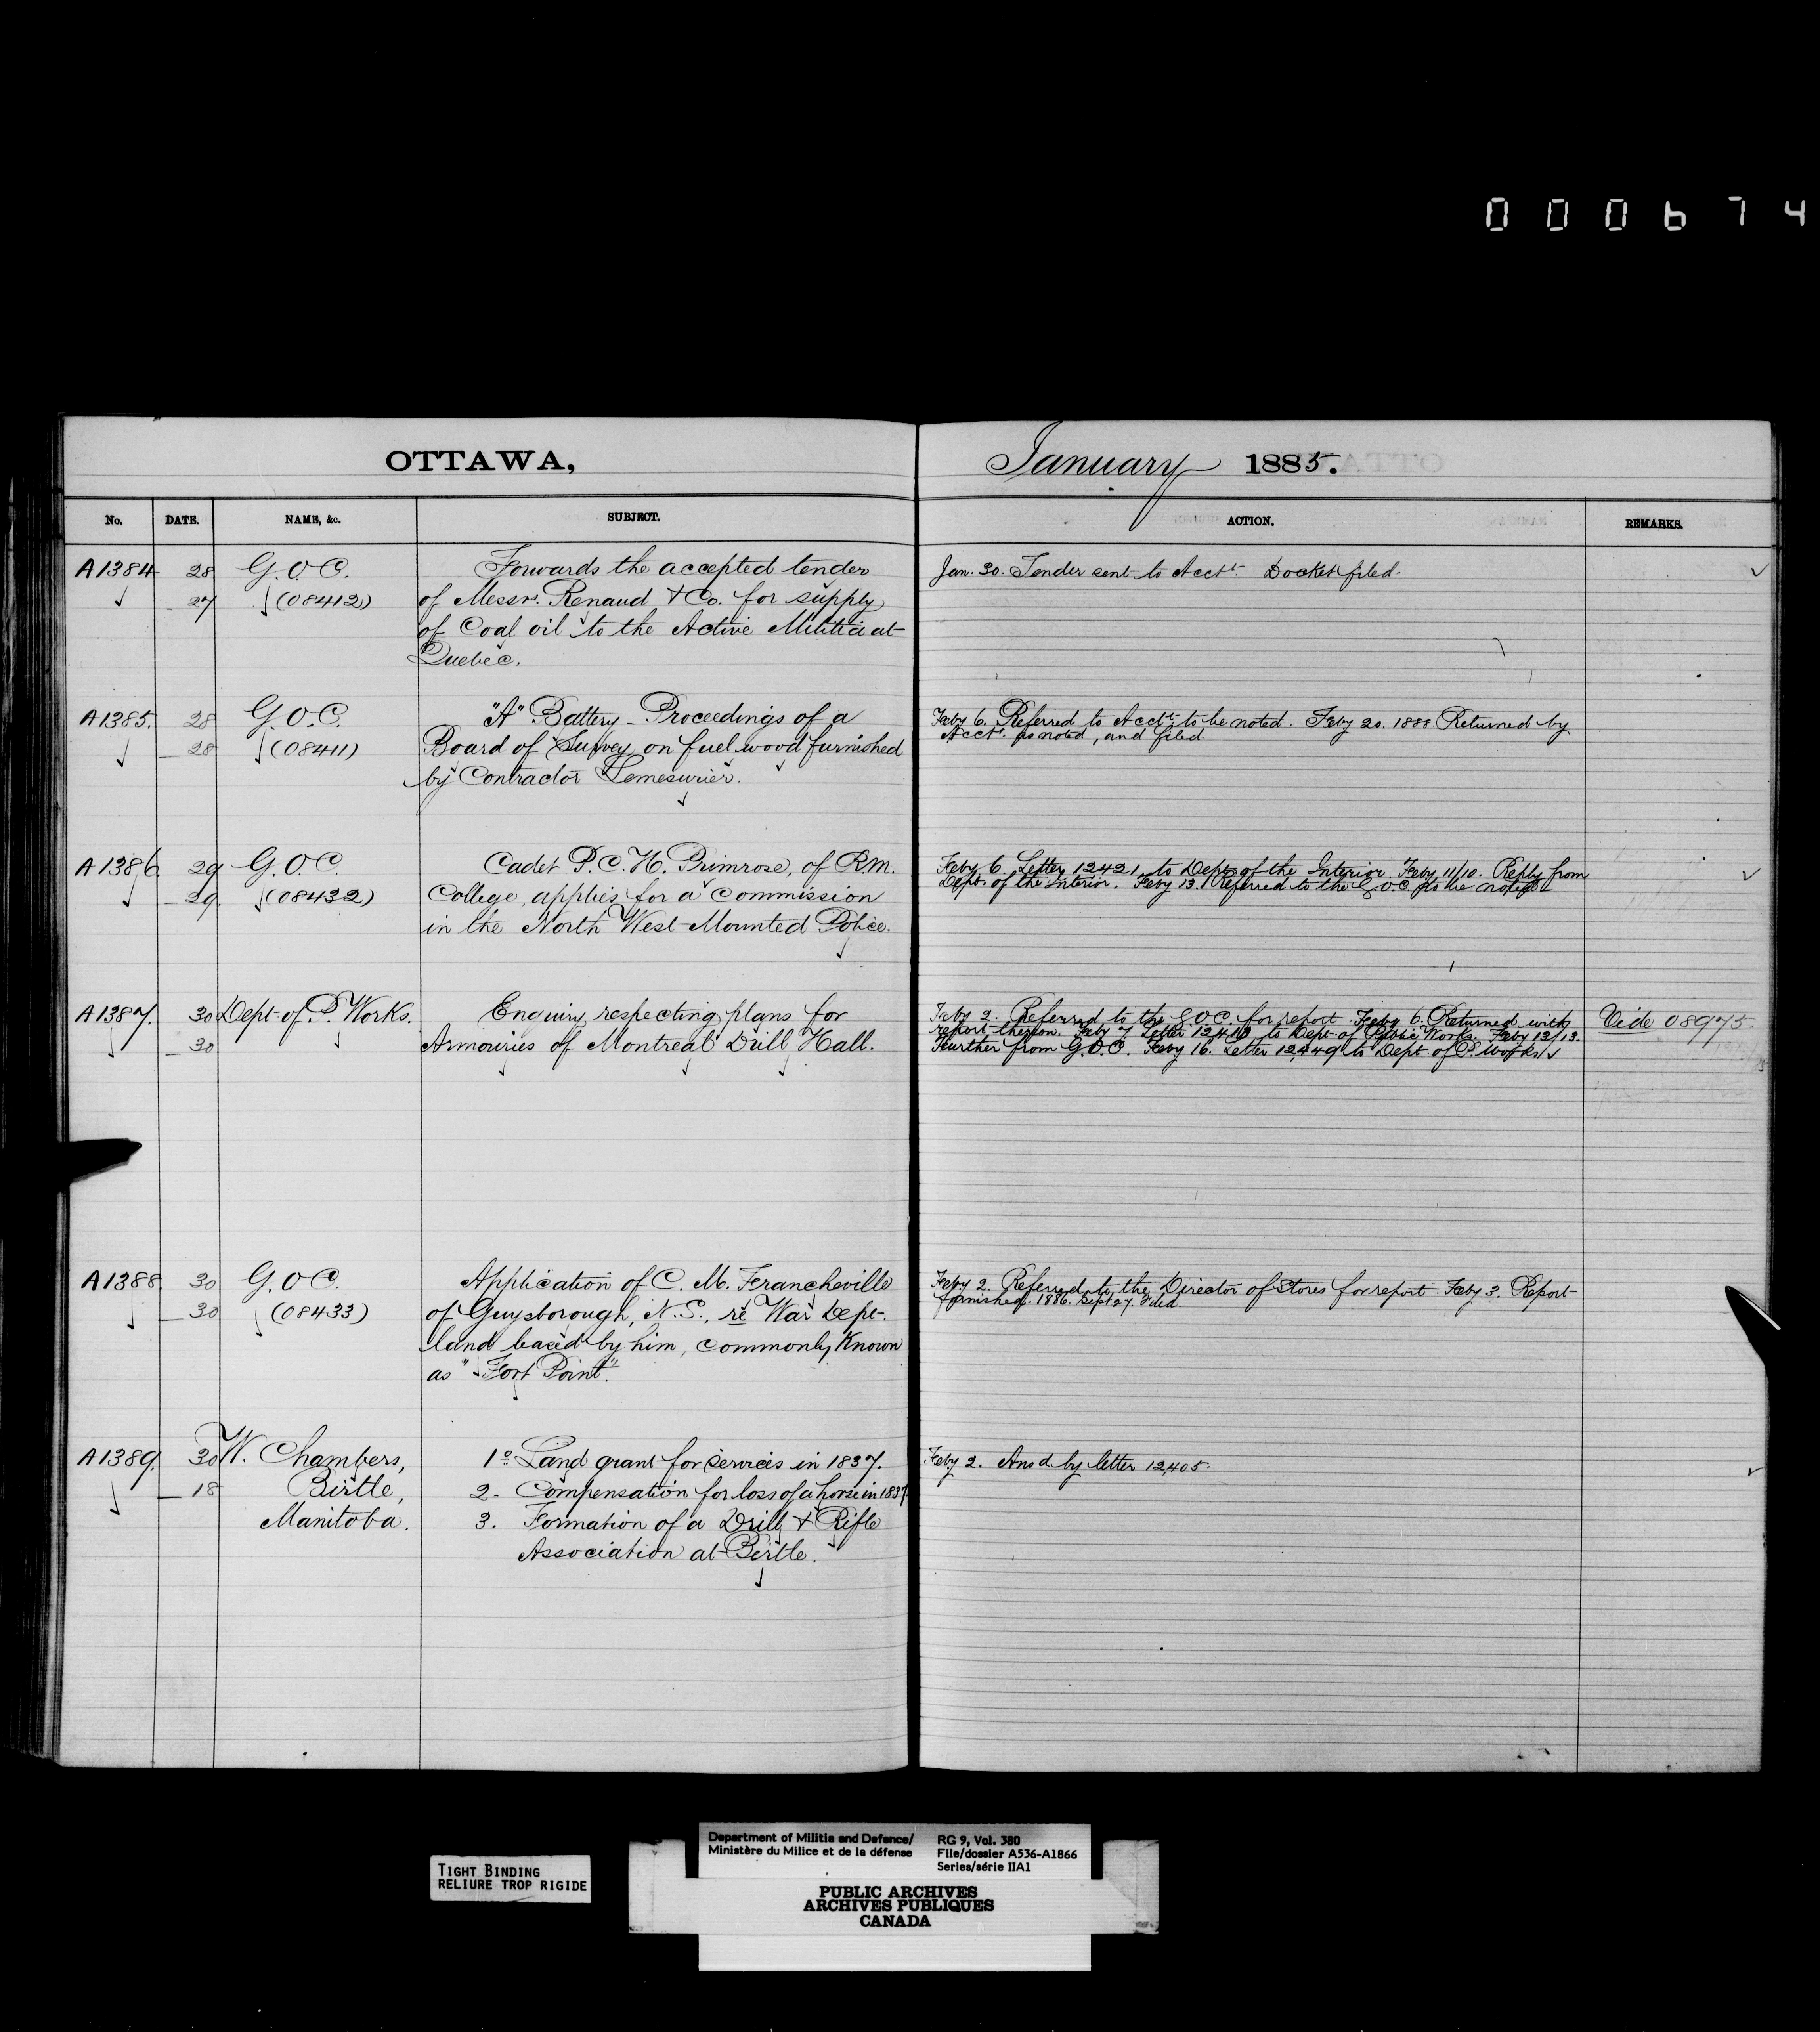 000674
OTTAWA,
January 1885.
No. DATE. NAME, &c. SUBJECT. ACTION. REMARKS.
A1384 28 G.O.C. Forwards the accepted tender
27 (08412) of Messrs. Renaud & Co. for supply
of Coal oil to the Active Militia at
Quebec.
Jan. 30. Tender sent to Acct. Docket filed.
A1385. 28 G.O.C. "A" Battery - Proceedings of a
28 (08411) Board of Survey on fuel wood furnished
by Contractor Lemesurier.
Feby 6. Referred to Acct. to be noted. Feby 20. 1888 Returned by
Acct. as noted, and filed
A1386 29 G.O.C. Cadet P.C.H. Primrose, of R.M.
29 (08432) College, applies for a Commission
in the North West Mounted Police.
Feby 6. Letter 12421 to Dept. of the Interior. Feby 11/10. Reply from
Dept. of the Interior. Feby 13. Referred to the G.O.C. to be noted
A1387. 30 Dept. of P. Works. Enquiry respecting plans for
30 Armouries of Montreal Drill Hall.
Feby 2. Referred to the G.O.C. for report Feby 6. Returned with
report thereon. Feby 7 Letter to Dept. of Public Works. Feby 13/13.
Further from G.O.C. Feby 16. Letter 12449 to Dept. of P. Works
Vide 08975.
A1388 30 G.O.C. Application of C. M. Francheville
30 (08433) of Guysborough, N.S., re War Dept.
land leased by him, commonly Known
as "Fort Point".
Feby 2. Referred to the Director of Stores for report Feby 3. Report
furnished. 1886. Sept 27. Filed
A1389. 30 W. Chambers, 1º Land grant for services in 1837.
18 Birtle, 2. Compensation for loss of a horse in 1837
Manitoba. 3. Formation of a Drill & Rifle
Association at Birtle.
Feby 2. Ansd. by letter 12,405.
TIGHT BINDING
RELIURE TROP RIGIDE
Department of Militia and Defence/
Ministère du Milice et de la défense
RG 9, Vol. 380
File/dossier A536-A1866
Series/série IIA1
PUBLIC ARCHIVES
ARCHIVES PUBLIQUES
CANADA